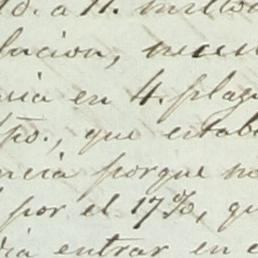 a 11. millo
lacion,
en 4. plaz
po., que estab
ncia porque no
por el 17%, qu
entrar en